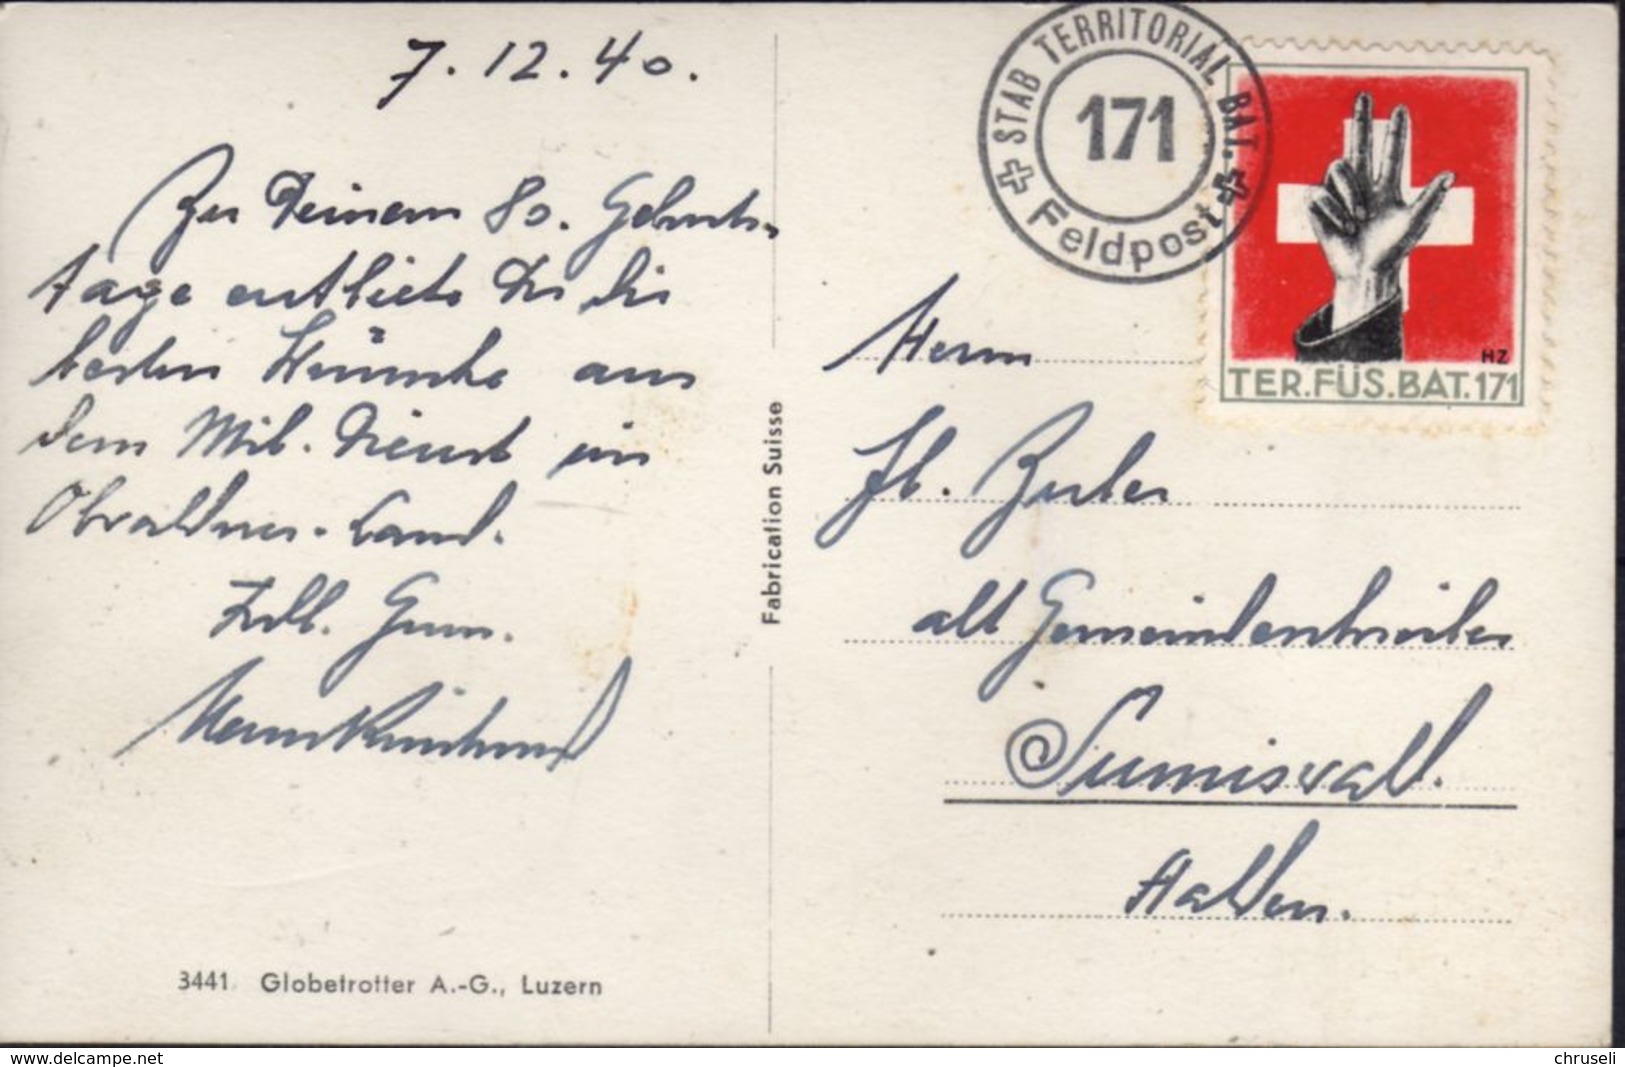 7. 12. 40.
Zu Deinem 80. Geburts-
tage entbiete Dir die
besten Wünsche aus
dem Mil. Dienst im
Obwaldner-Land.
Frdl. Gruss.
Fabrication Suisse
3441. Globetrotter A.-G., Luzern
STAB TERRITORIAL BAT.
171
Feldpost
HZ
TER.FÜS.BAT.171
Herrn
alt Gemeindeschreiber
Sumiswald.
Halden.
www.delcampe.net
chruseli